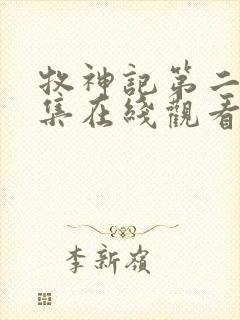 牧神記第二
集在綫觀看
李新嶺